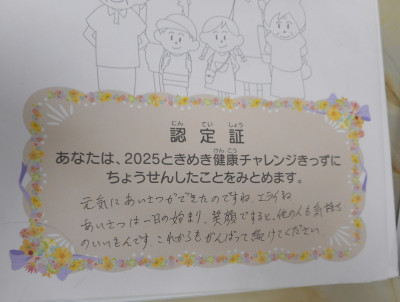 にん てい しょう
認定証
けん こう
あなたは、2025ときめき健康チャレンジきっずに
ちょうせんしたことをみとめます。
元気にあいさつができたのですね。エライね
あいさつは一日の始まり、笑顔ですると、他の人も気持ち
のいいもんです。これからもがんばって続けてください